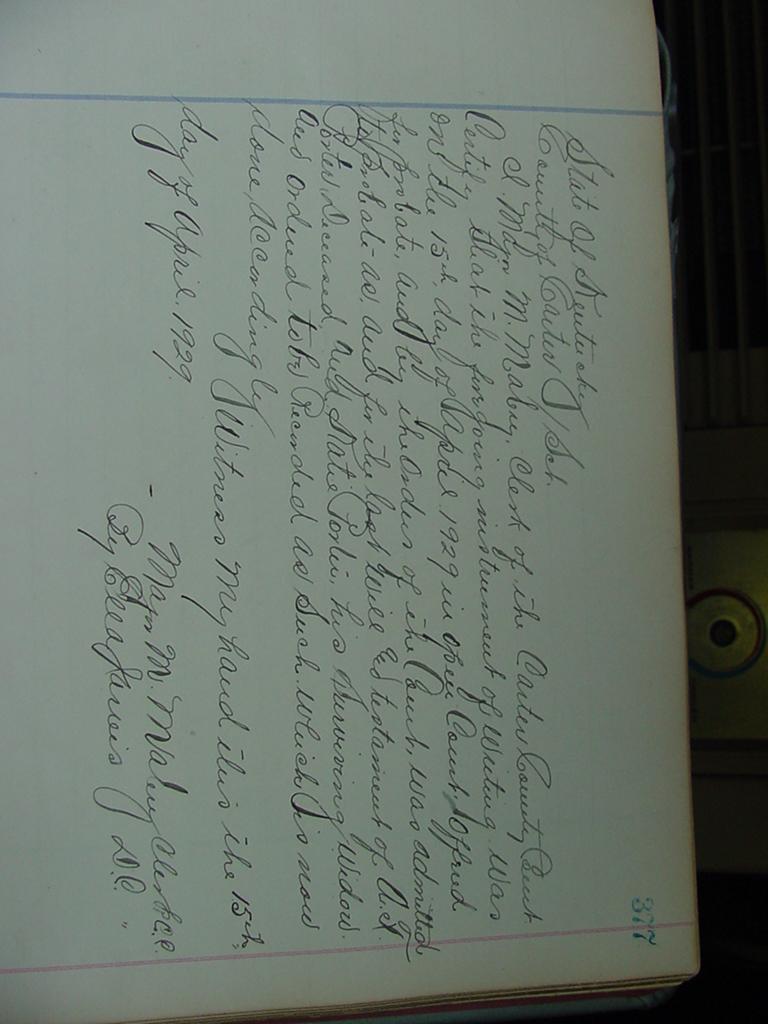 377
State Of Kentucky
County of Carter / Sct.
I, M. Mabry, Clerk of the Carter County Court
Certify that the forgoing instrument of Writing was
on the 15th day of April 1929 in open Court, offered
for probate, and by the Orders of the Court, was admitted
to probate as, and for the last will & testament of A.T.
Porter, Deceased, and Porter, his surviving Widow.
and ordered to be Recorded as Such. which is now
done, accordingly Witness my hand this the 15th
day of April. 1929.
M. Mabry Clerk C.C.
By Jarvis D.C.